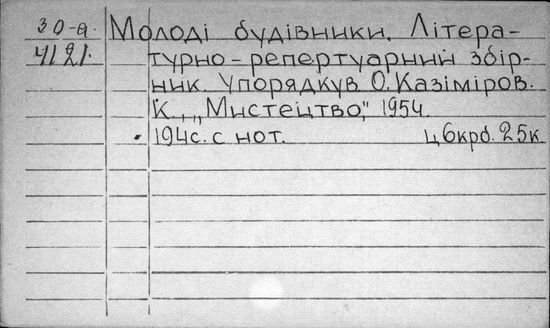 30-а Молоді будівники. Літера-
4121. турно-репертуарний збір-
ник. Упорядкув О. Казіміров.
К., „Мистецтво”, 1954.
194с. с нот. ц 6крб. 25к.